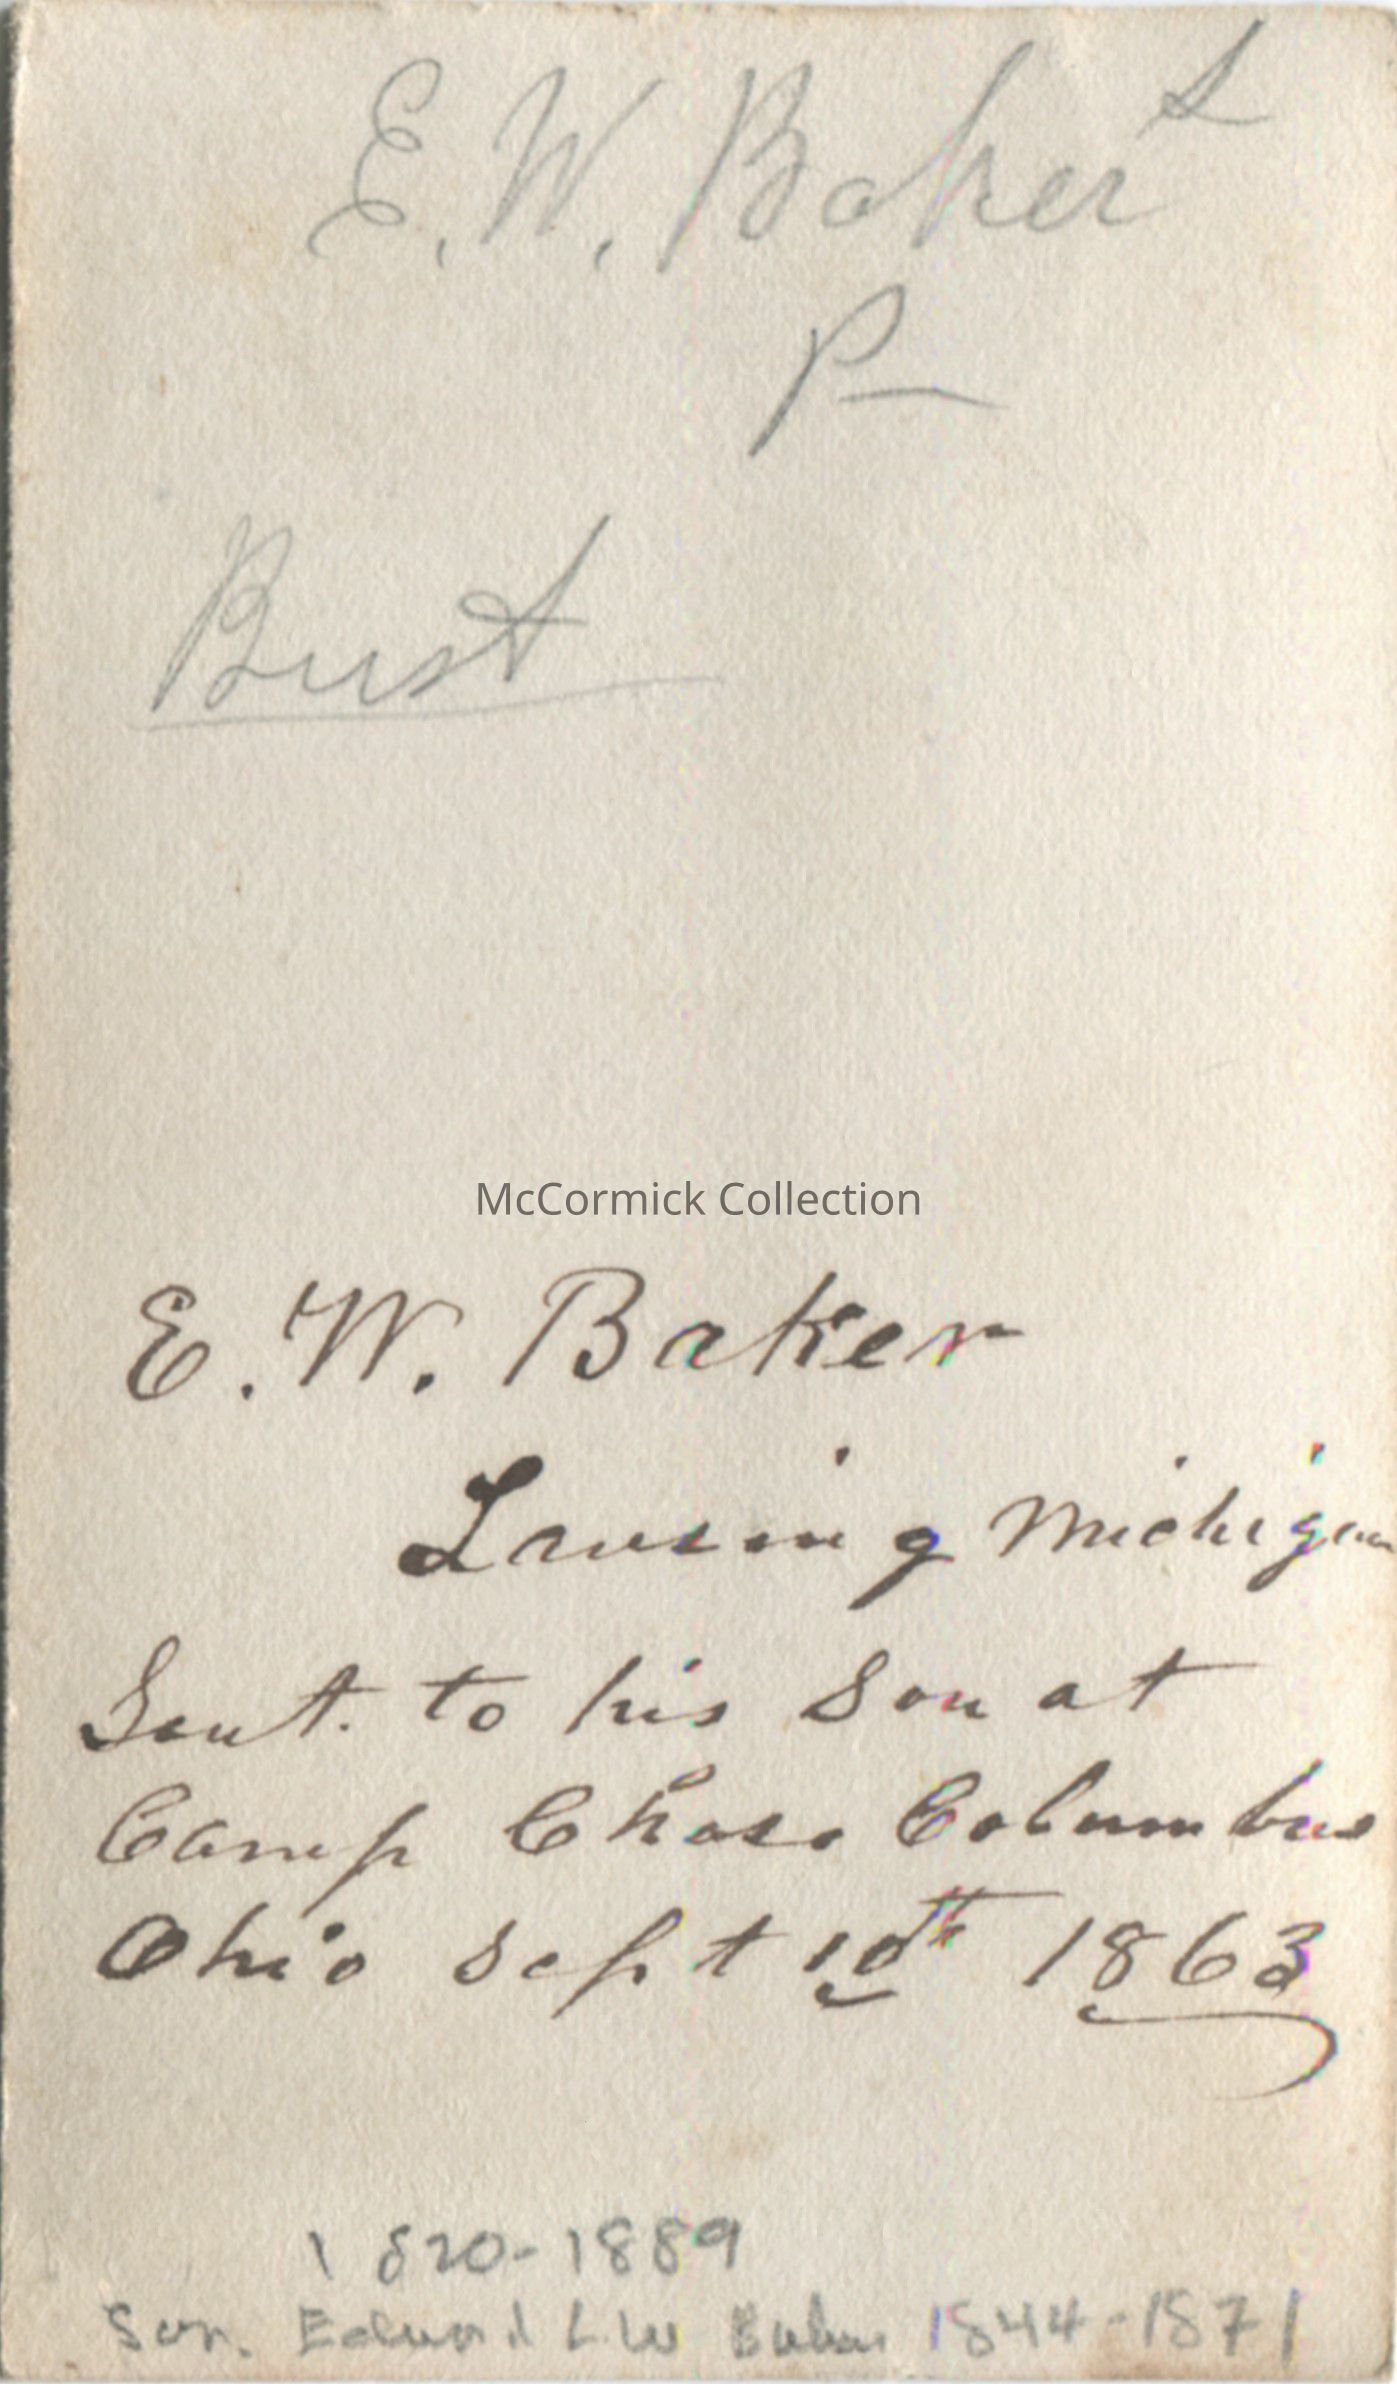 E. W. Baker
P
Bust
McCormick Collection
E. W. Baker
Lansing Michigan
Sent. to his Son at
Camp Chase Columbus
Ohio Sept 10th 1863
1820-1889
Son. Edward L. W Baker 1844-1871